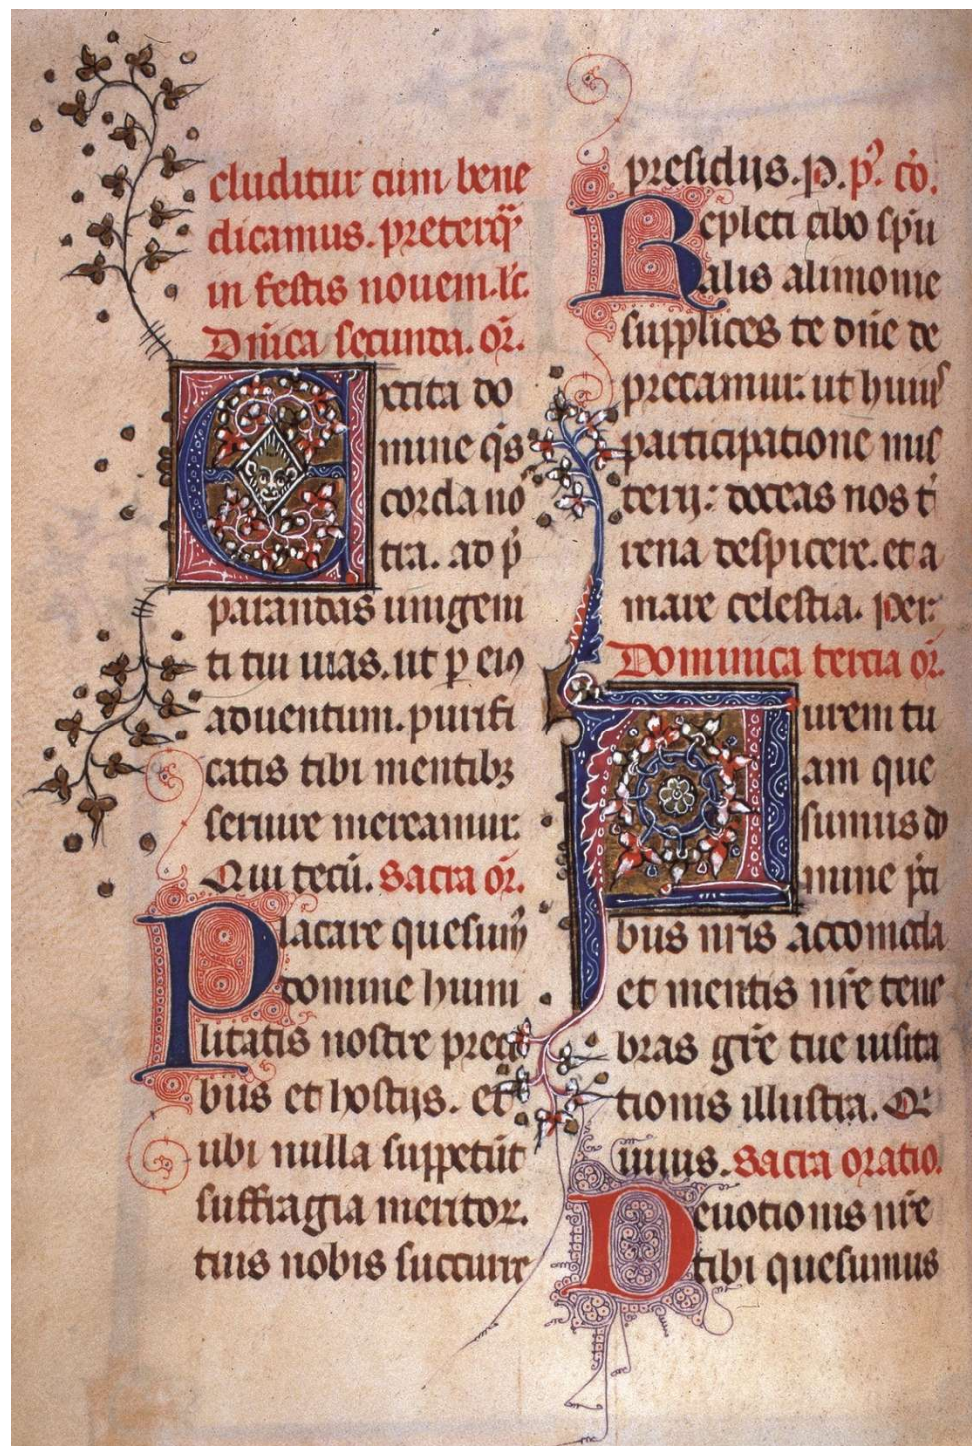 cluditur cum bene
dicamus. preterq̃
in festis nouem. lc̃.
Dñica secunda. or̃.
Excita do
mine q̃s
corda nõ
tra. ad p̃
parandas unigeni
ti tui uias. ut ꝑ eiꝰ
aduentum. purifi
catis tibi mentibꝫ
seruire mereamur.
Qui tecũ. Sacra or̃.
Placare quesumꝰ
domine humi
litatis nostre preci
bus et hostijs. et
ubi nulla suppetũt
suffragia meritor.
tuis nobis succurre
presidijs. P. pꝰ cõ.
Repleti cibo sp̃u
alis alimonie
supplices te dñe de
precamur. ut huiꝰ
participatione mis
terij: doceas nos t̃
rena despicere. et a
mare celestia. Per.
Dominica tercia or̃.
Aurem tu
am que
sumus do
mine p̃ci
bus nr̃is accomoda
et mentis nr̃e tene
bras gr̃e tue uisita
tionis illustra. Q̃
uiuis. Sacra oratio.
Deuotionis nr̃e
tibi quesumus